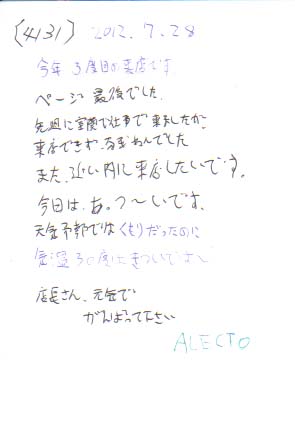 (4131) 2012.7.28
今年3度目の来店です
ページ最後でした
先週に室蘭で仕事で来ましたが、
来店できず、ざんねんでした
また、近い内に来店したいです。
今日は、あ。つ〜いです。
天気予報ではくもりだったのに
気温30度はきついです〜
店長さん、元気で
がんばって下さい
ALECTO